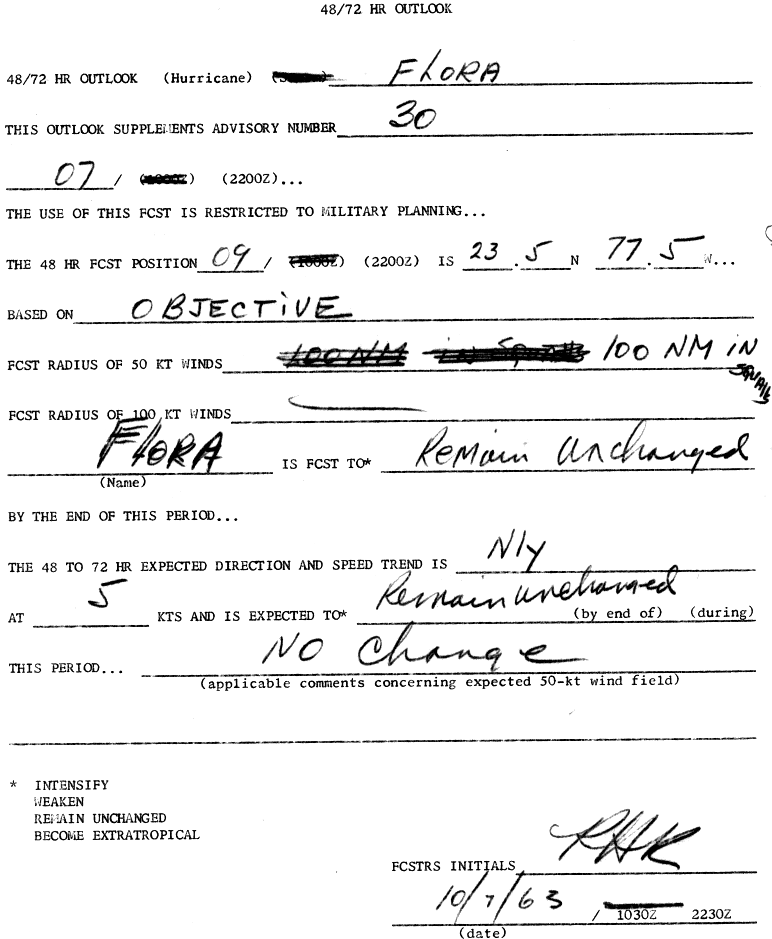 48/72 HR OUTLOOK
48/72 HR OUTLOOK (Hurricane) FLORA
THIS OUTLOOK SUPPLEMENTS ADVISORY NUMBER 30
07 / (2200Z)...
THE USE OF THIS FCST IS RESTRICTED TO MILITARY PLANNING...
THE 48 HR FCST POSITION 09 / (1000Z) (2200Z) IS 23.5 N 77.5 W...
BASED ON OBJECTIVE
FCST RADIUS OF 50 KT WINDS 100 NM in Squalls 100 NM iN SQUALLS
FCST RADIUS OF 100 KT WINDS —
FLORA IS FCST TO* Remain Unchanged
(Name)
BY THE END OF THIS PERIOD...
THE 48 TO 72 HR EXPECTED DIRECTION AND SPEED TREND IS Nly
AT 5 KTS AND IS EXPECTED TO* Remain unchanged
(by end of) (during)
THIS PERIOD... NO Change
(applicable comments concerning expected 50-kt wind field)
* INTENSIFY
WEAKEN
REMAIN UNCHANGED
BECOME EXTRATROPICAL
FCSTRS INITIALS RHK
10/7/63 / 1030Z 2230Z
(date)